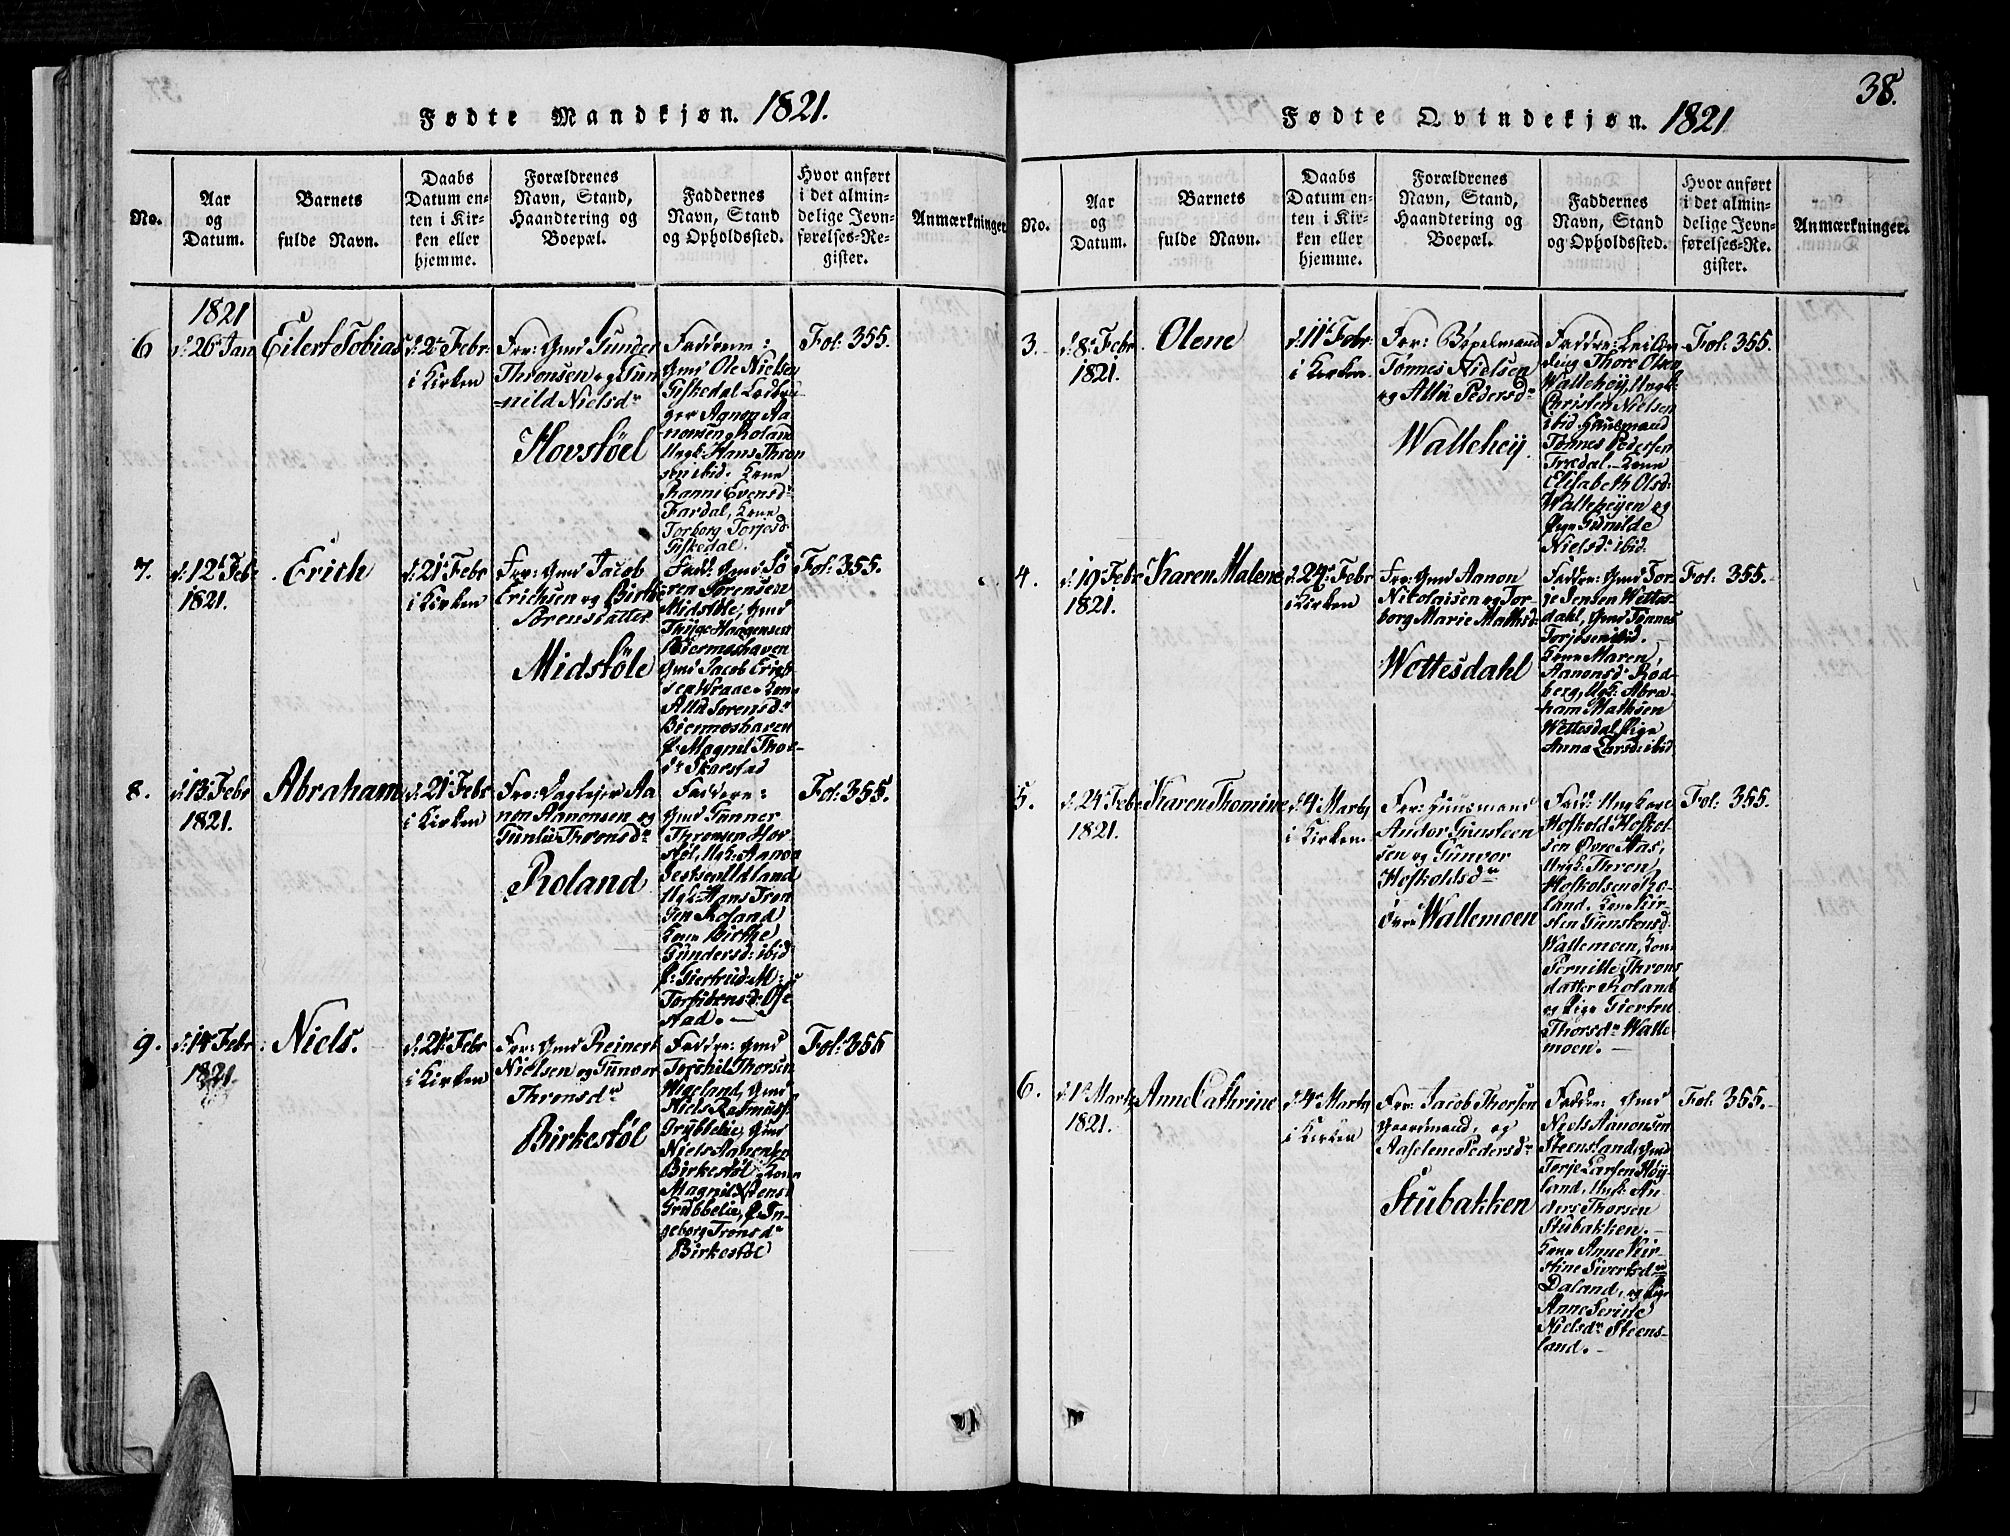 38.
Fødte Mandkjøn. 1821.
No.
Aar
og
Datum.
Barnets
fulde Navn.
Daabs
Datum en-
ten i Kir-
ken eller
hjemme.
Forældrenes
Navn, Stand,
Haandtering og
Boepæl.
Faddernes
Navn, Stand
og Opholdssted.
Hvor anført
i det almin-
delige Jevn-
førelses-Re-
gister.
Anmærkninger
6
1821
d: 26 Jan
Eilert Tobias
d: 2 Febr
i Kirken
For: Gmd Gunder
Thronsen og Gun
nild Nielsdr
Hovstøel
Faddrene:
Gmd Ole Nielsen
Fiskedal
Aanon Aa-
nonsen Roland
Ungk: Hans Thron
sen ibid: Kone
Evensdr
Fardal, Kone
Torborg Torjesd
Fiskedal.
Fol: 355.
7.
d: 12 Feb:
1821.
Erich
d: 21 Febr
i Kirken
For: Gmd Jacob
Erichsen og Birthe
Sørensdatter
Midstøle
Fadd: Gmd Sø
ren Sørensen
Midstøle, Gmd
Haagensen
Biermoshaven
Gmd Jacob Erich
sen Kone
Sørensdr
Biermoshaven
P: Magnil Thor-
dr Skarstad
Fol: 355.
8.
d: 13 Febr
1821.
Abraham
d: 21 Febr
i Kirken
For: Aa
non Aanonsen og
Thronsdr
Roland
Faddere:
Gmd Gunner
Thronsen Hov
støl, Ugk: Aanon
Ugk: Hans Tron
sen Roland
Kone Birthe
Gundersd: ibid
P: Giertrud M:
Fol: 355.
9.
d: 14 Febr
1821.
Niels.
d: 21 Febr
i Kirken
For: Gmd Reinert
Nielsen og Gunvor
Thronsdr
Birkestøl
Faddre: Gmd
Torkhil Thorsen
Higeland, Gmd
Niels Rasmuss:
Grubbelie, Gmd
Niels
Birkestøl, Kone
Magnil
Grubbelie, P: In-
geborg Tronsdr
Birkestøl
Fol: 355
Fødte Qvindekjøn. 1821
No.
Aar
og
Datum.
Barnets
fulde Navn.
Daabs
Datum en-
ten i Kir-
ken eller
hjemme.
Forældrenes
Navn, Stand,
Haandtering og
Boepæl.
Faddernes
Navn, Stand
og Opholdssted.
Hvor anført
i det almin-
delige Jevn-
førelses-Re-
gister.
Anmærkninger.
3.
d: 8 Febr
1821.
Olene
d: 11 Febr
i Kirken
For: Bøpelmand
Tønnes Nielsen
og Pedersdr
Wallehøy.
Thore Olsen
Wallehøy, Ungk:
Christen Nielsen
ibid. Huusmand
Tønnes Pedersen
Trædal. Kone
Elisabeth Olsd:
Wallehøyen og
Pige Gunilde
Nielsdr ibid.
Fol: 355.
4.
d: 19 Febr
1821.
Karen Malene
d: 24 Febr
i Kirken
For: Gmd Aanon
Nikolaisen og Tor
borg Marie Mathisd
Wettesdahl
Faddre: Gmd Tor-
je Jensen Wettes-
dahl, Gmd Tønnes
Torjesen ibid.
Kone Maren
Aanonsd: Rød-
berg, Ugk: Abra-
ham Mathsen
Wettesdal, Pige
Anna Larsd: ibid
Fol: 355.
5.
d: 24 Feb
1821.
Karen Thomine
d: 4 Marty
i Kirken.
For: Huusmand
Andor Gunsteen
sen og Gunvor
Hofkoldsdr
Øvre Wallemoen
Fadd: Ungkarl
Hofkold Hofkol-
sen Øvre Aas,
Ungk. Thron
Hofkolsen Ro-
land. Kone Kir-
sten Gunstensd.
Wallemoen, Kone
Pernille Throns
datter Roland
og Pige Giertru
Thorsdr Walle
moen.
Fol: 355.
6.
d: 1 Marty
1821.
Anne Cathrine
d: 4 Marty
i Kirken
For: Jacob Thorsen
Gaardmand, og
Aaselene Pedersdr
Stubakken
Faddre: Gmd
Niels Aanonsen
Steensland, Gmd
Torje Larsen Høy-
land, Ungk: An
ders Thorsen
Stubakken.
Kone Anne Kir-
stine Sivertsdr
Daland, og Pige
Anne Serine
Nielsdr Steens-
land.
Fol: 355.